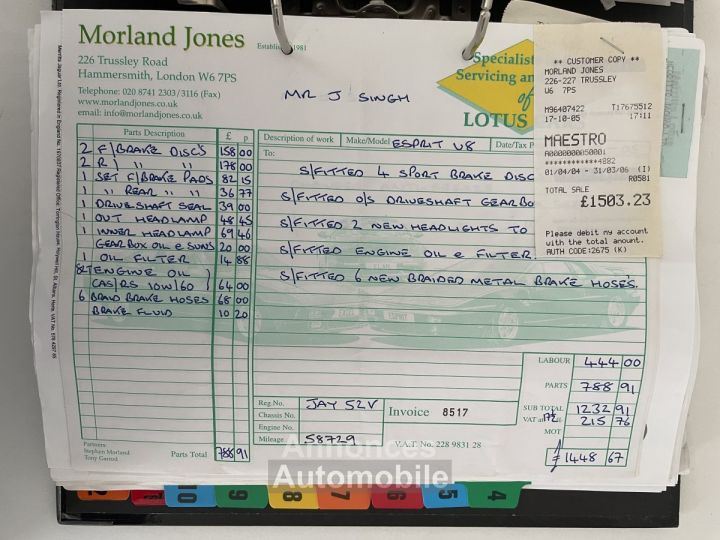 Morland Jones
Established 1981
226 Trussley Road
Hammersmith, London W6 7PS
Telephone: 020 8741 2303/3116 (Fax)
www.morlandjones.co.uk
email: info@morlandjones.co.uk
MR J SINGH
Specialist
Servicing an
of
LOTUS
** CUSTOMER COPY **
MORLAND JONES
226-227 TRUSSLEY
W6 7PS
M96407422 T17675512
17-10-05 17:11
MAESTRO
A0000000050001
************4882
01/04/04 - 31/03/06 (I)
R0581
TOTAL SALE
£1503.23
Please debit my account
with the total amount.
AUTH CODE:2675 (K)
Parts Description £ p
2 F/BRAKE DISC'S 158 00
2 R/ " " 178 00
1 SET F/BRAKE PADS 82 15
1 " REAR " " 36 77
1 DRIVESHAFT SEAL 39 00
1 OUT HEADLAMP 48 45
1 INNER HEADLAMP 69 46
GEARBOX OIL & SUNS 20 00
1 OIL FILTER 14 88
8LT ENGINE OIL )
CAS/RS 10W/60 ) 64 00
6 BRAID BRAKE HOSES 68 00
BRAKE FLUID 10 20
Parts Total 788 91
Partners
Stephen Morland
Tony Garrod
Description of work Make/Model ESPRIT V8 Date/Tax P
To:
S/FITTED 4 SPORT BRAKE DISC
S/FITTED O/S DRIVESHAFT GEARBO
S/FITTED 2 NEW HEADLIGHTS TO
S/FITTED ENGINE OIL & FILTER.
S/FITTED 6 NEW BRAIDED METAL BRAKE HOSE'S.
LABOUR 444 00
PARTS 788 91
SUB TOTAL 1232 91
VAT at 17½ 215 76
MOT
£ 1448 67
Reg.No. JAY 52V
Chassis No.
Engine No.
Mileage 58729
Invoice 8517
V.A.T. No. 228 9831 28
Annonces
Automobile
10 9 8 7 6 5 4